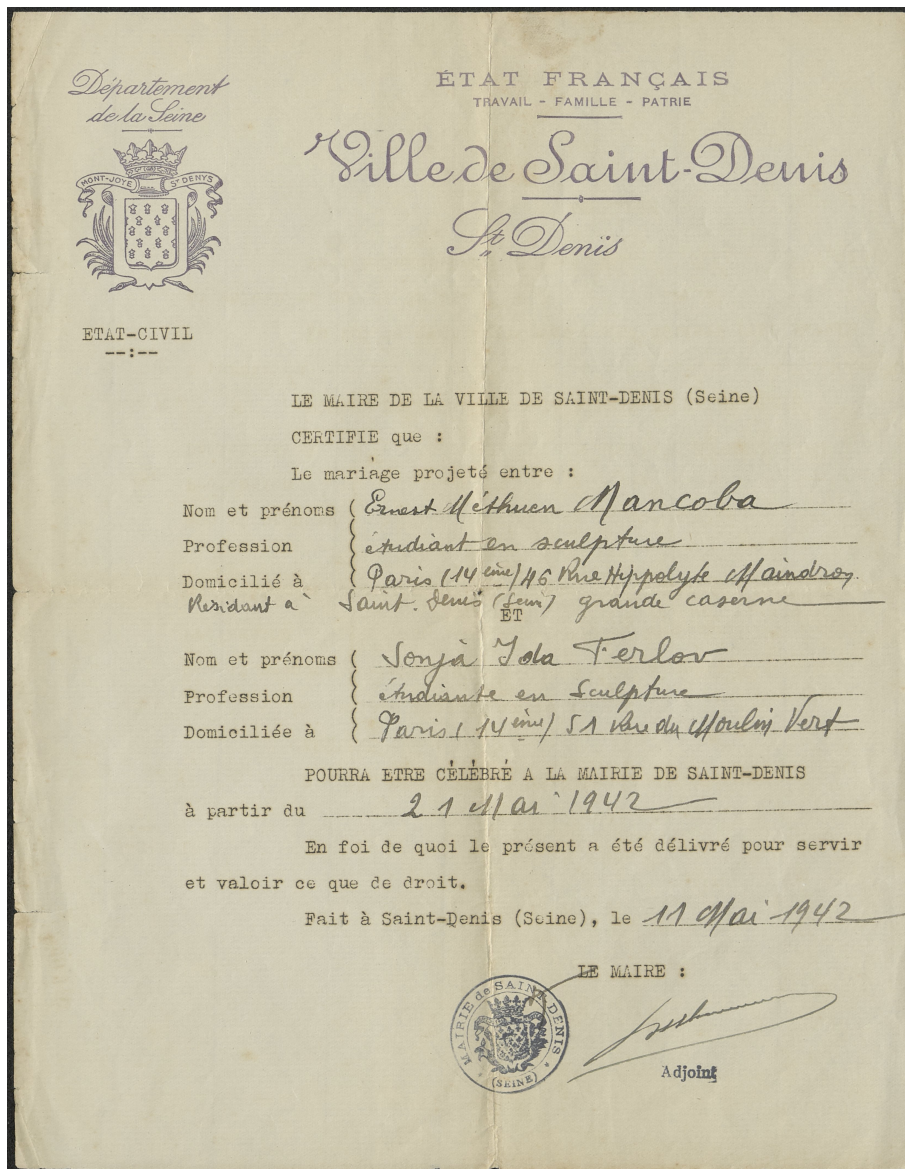 Département
de la Seine
MONT-JOYE St DENYS
ÉTAT FRANÇAIS
TRAVAIL - FAMILLE - PATRIE
Ville de Saint-Denis
St Denis
ETAT-CIVIL
--:--
LE MAIRE DE LA VILLE DE SAINT-DENIS (Seine)
CERTIFIE que :
Le mariage projeté entre :
Nom et prénoms ( Ernest Méthuen Mancoba
Profession ( étudiant en sculpture
Domicilié à ( Paris (14ème) 46 Rue Hippolyte Maindron
Résidant à Saint-Denis (Seine) grande caserne
ET
Nom et prénoms ( Sonja Ida Ferlov
Profession ( étudiante en Sculpture
Domiciliée à ( Paris (14ème) 51 Rue du Moulin Vert
POURRA ETRE CÉLÉBRÉ A LA MAIRIE DE SAINT-DENIS
à partir du 21 Mai 1942
En foi de quoi le présent a été délivré pour servir
et valoir ce que de droit.
Fait à Saint-Denis (Seine), le 11 Mai 1942
LE MAIRE :
MAIRIE de SAINT-DENIS
(SEINE)
Adjoint